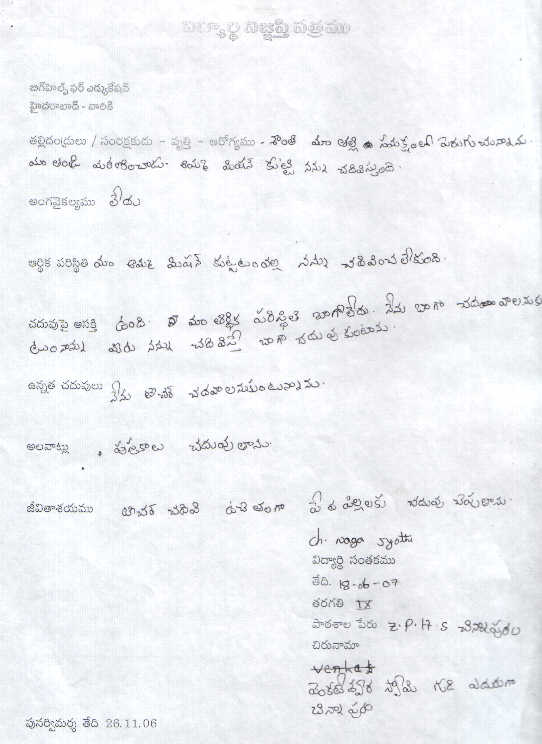 విద్యార్థి విజ్ఞప్తి పత్రము
బిగ్‌హెల్ప్ ఫర్ ఎడ్యుకేషన్
హైదరాబాద్ - వారికి
తల్లిదండ్రులు / సంరక్షకుడు - వృత్తి - ఆరోగ్యము - మా తల్లి సమక్షంలో పెరుగుచున్నాను.
మా తండ్రి మరణించాడు. ఆమె మిషన్ కుట్టి నన్ను చదివిస్తుంది.
అంగవైకల్యము లేదు
ఆర్థిక పరిస్థితి మా అమ్మ మిషన్ కుట్టటంవల్ల నన్ను చదివించలేకుంది.
చదువుపై ఆసక్తి ఉంది. మా ఆర్థిక పరిస్థితి బాగాలేదు. నేను బాగా చదవాలనుకు
ంటున్నాను మీరు నన్ను చదివిస్తే బాగా చదువుకుంటాను.
ఉన్నత చదువులు నేను టీచర్ చదవాలనుకుంటున్నాను.
అలవాట్లు . పుస్తకాలు చదువుతాను.
జీవితాశయము టీచర్ చదివి ఉచితంగా పేద పిల్లలకు చదువు చెపుతాను.
ch. naga jyothi
విద్యార్థి సంతకము
తేది. 18-06-07
తరగతి IX
పాఠశాల పేరు Z.P.H.S చిన్నాపురం
చిరునామా
venkat
వెంకటేశ్వర స్వామి గుడి ఎదురుగా
చిన్నాపురం
పునర్విమర్శ తేది 26.11.06